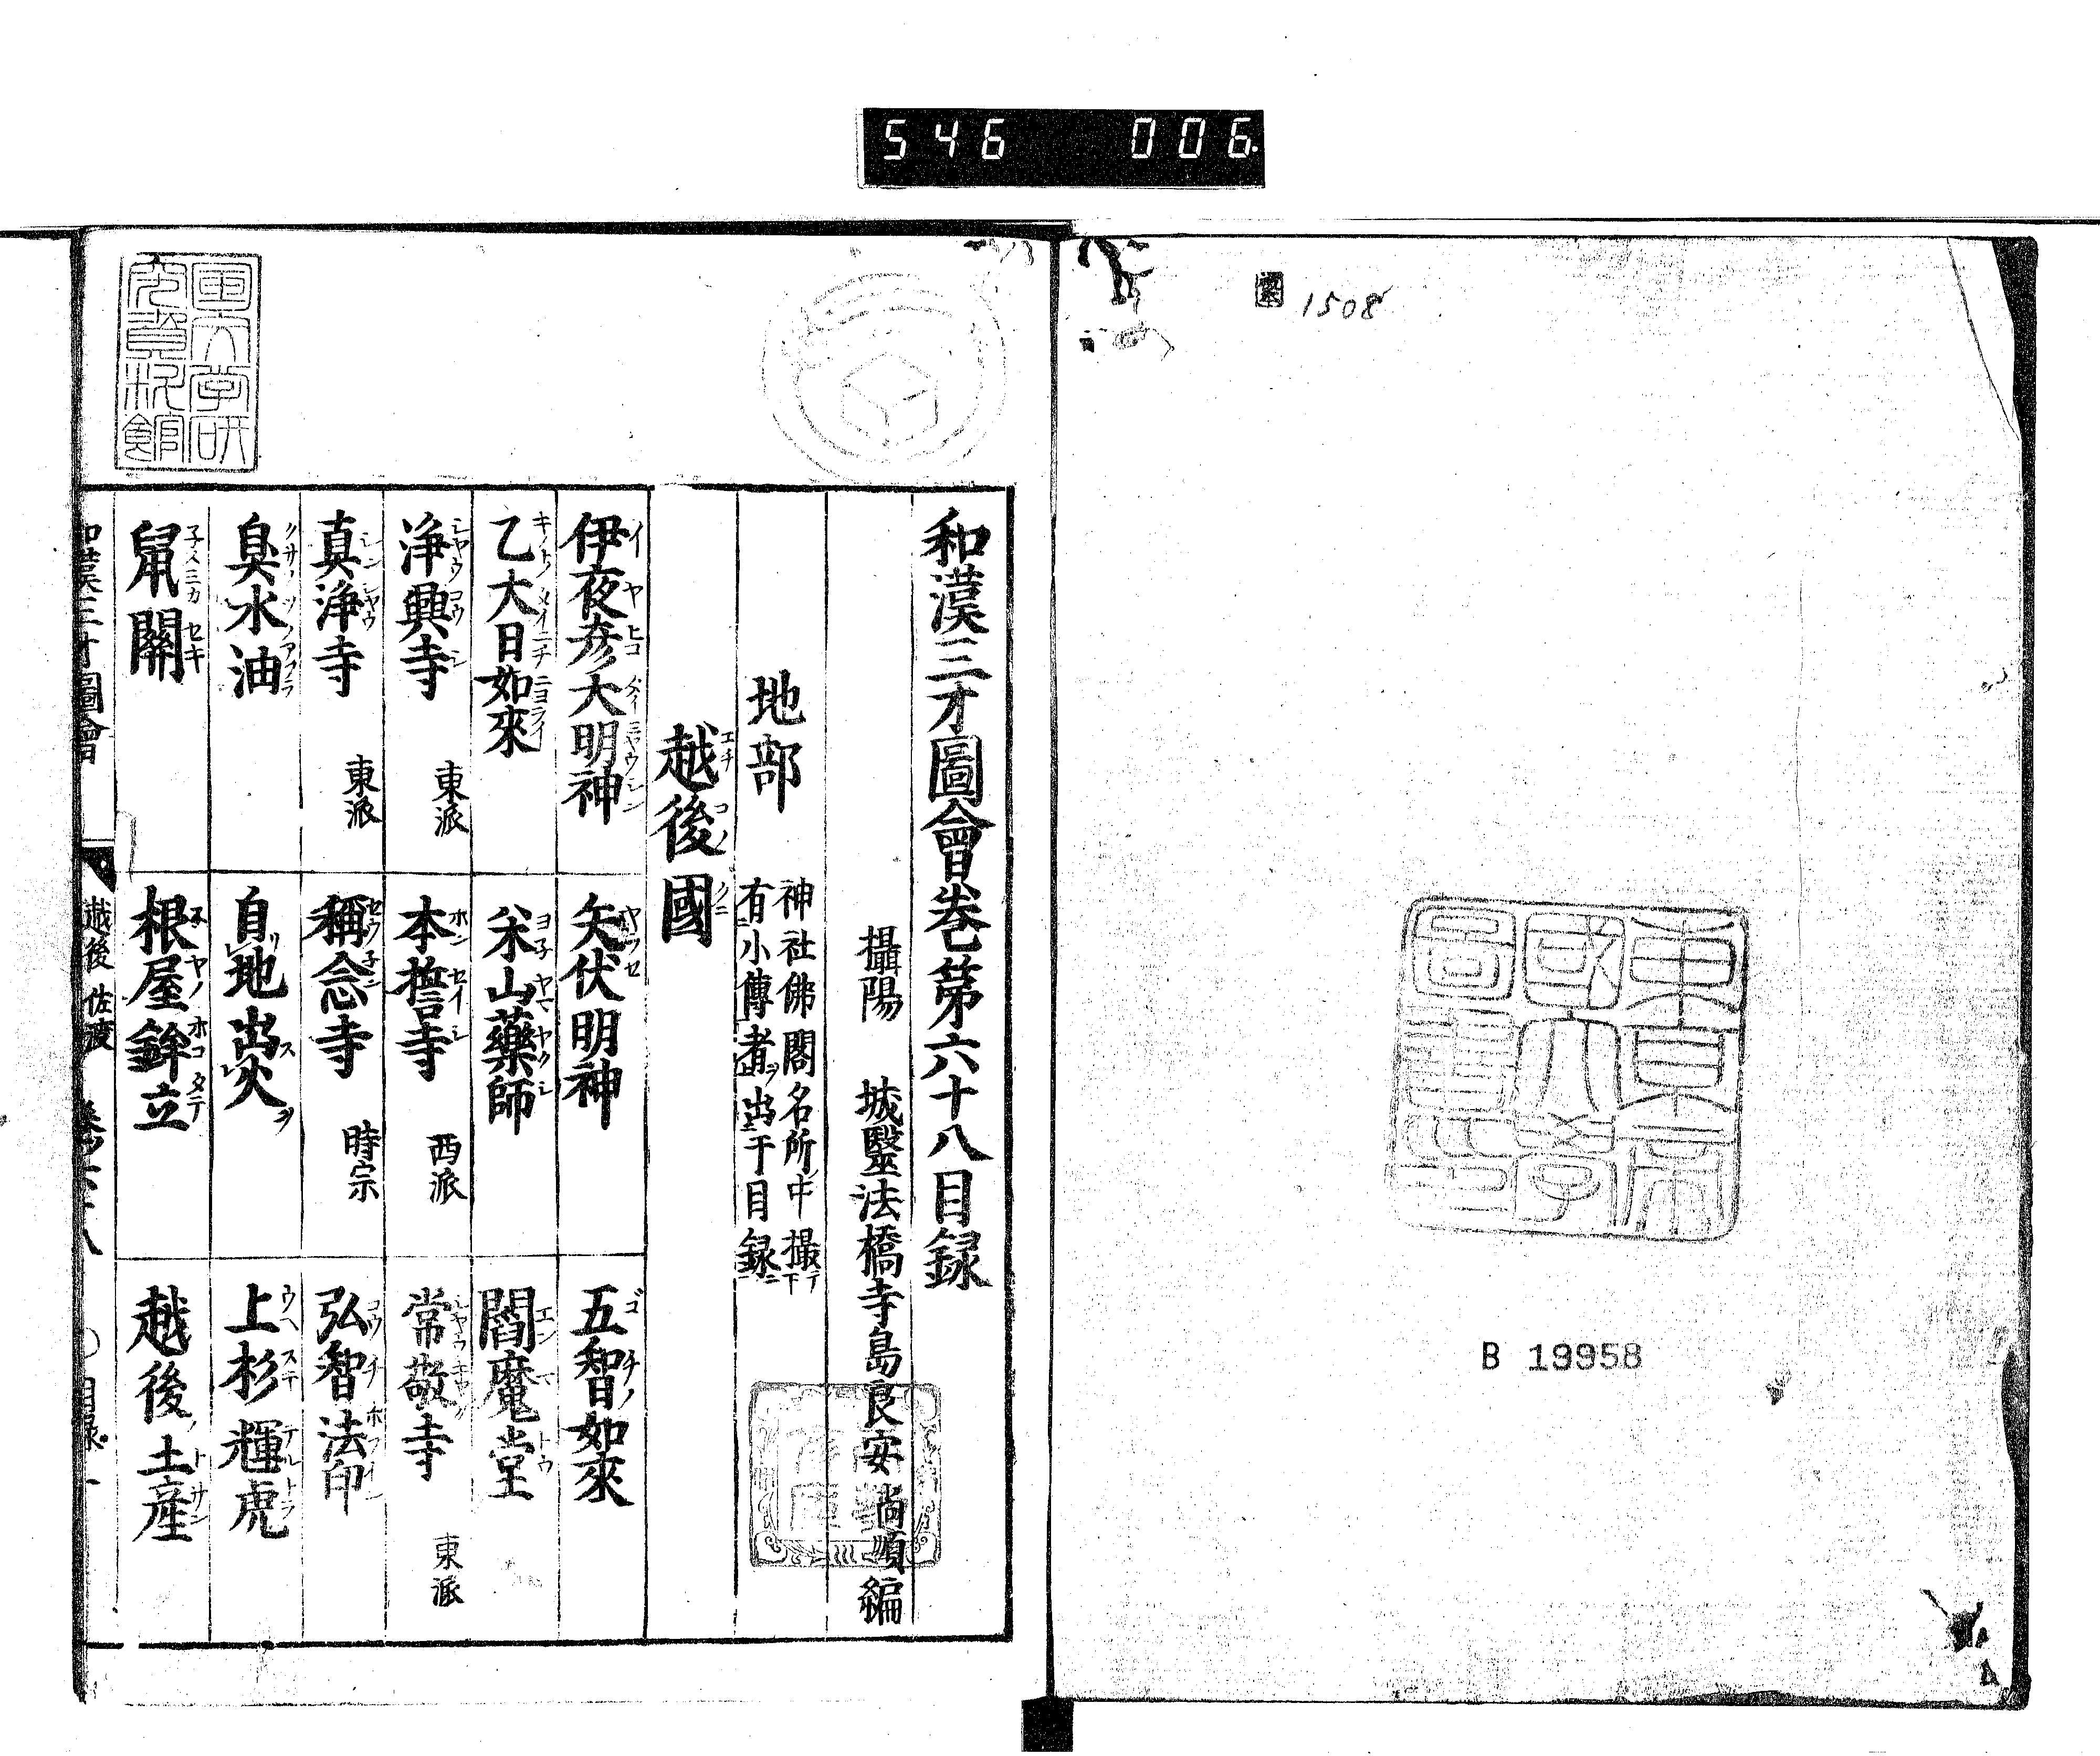 546 006.
1508
東京帝
國大學
圖書印
B 19958
和漢三才圖會卷第六十八目録
攝陽 城醫法橋寺島良安尚順編
地部
神社佛閣名所中撮テ
有小傳者ヲ出于目録ニ
越後國
エチコノクニ
伊夜彦大明神
イヤヒコ
矢伏明神
五智如來
ゴチノ
乙大日如來
米山藥師
ヨ子ヤマヤクシ
閻魔堂
浄興寺 東派
本誓寺 西派
ホンセイシ
常敬寺 東派
真浄寺 東派
稱念寺 時宗
弘智法印
臭水油
自地出火ヲ
上杉輝虎
鼠關
根屋鉾立
越後土産
和漢三才圖會
越後 佐渡
目録
国文学研
究資料館